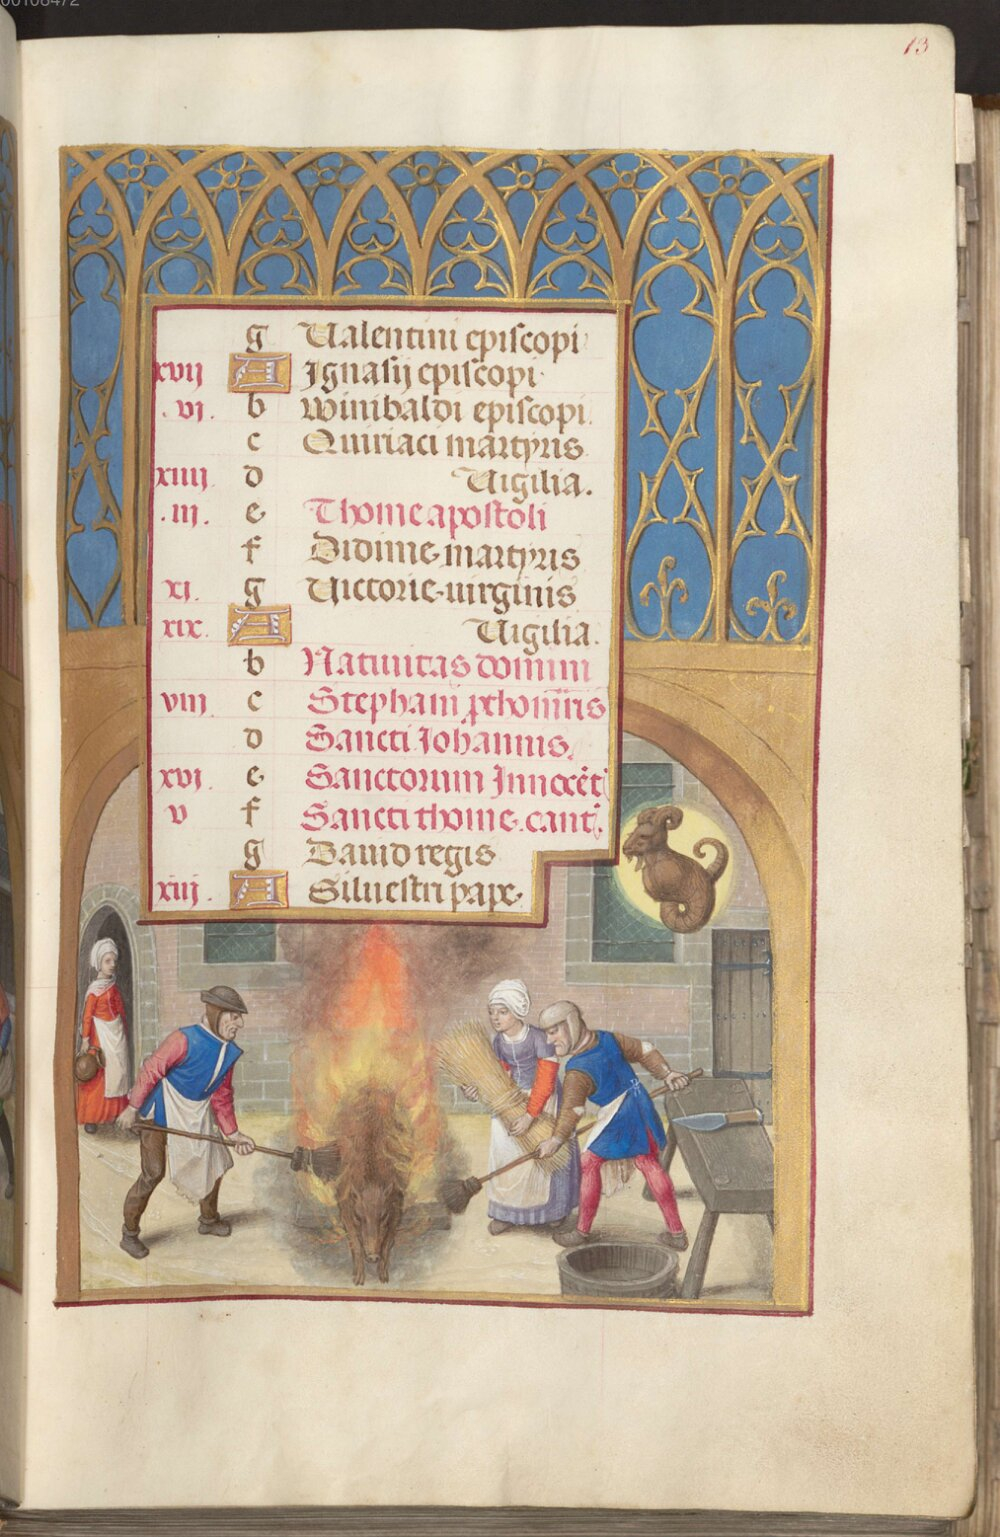 00108472
13
g Valentini episcopi
xvii A Ignasij episcopi
.vi. b Winibaldi episcopi.
c Quiriaci martyris
xiiij d Vigilia.
.iij. e Thome apostoli
f Didime martyris
xi. g Victorie virginis
xix. A Vigilia.
b Natiuitas domini
viij c Stephani ꝓthomr̄is
d Sancti Iohannis.
xvj e Sanctorum Innocēt
v f Sancti thome cant̄.
g Dauid regis
xiij A Siluestri pape